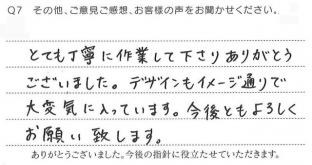 Q7 その他、ご意見ご感想、お客様の声をお聞かせください。
とても丁寧に作業して下さりありがとう
ございました。デザインもイメージ通りで
大変気に入っています。今後ともよろしく
お願い致します。
ありがとうございました。今後の指針に役立たせていただきます。